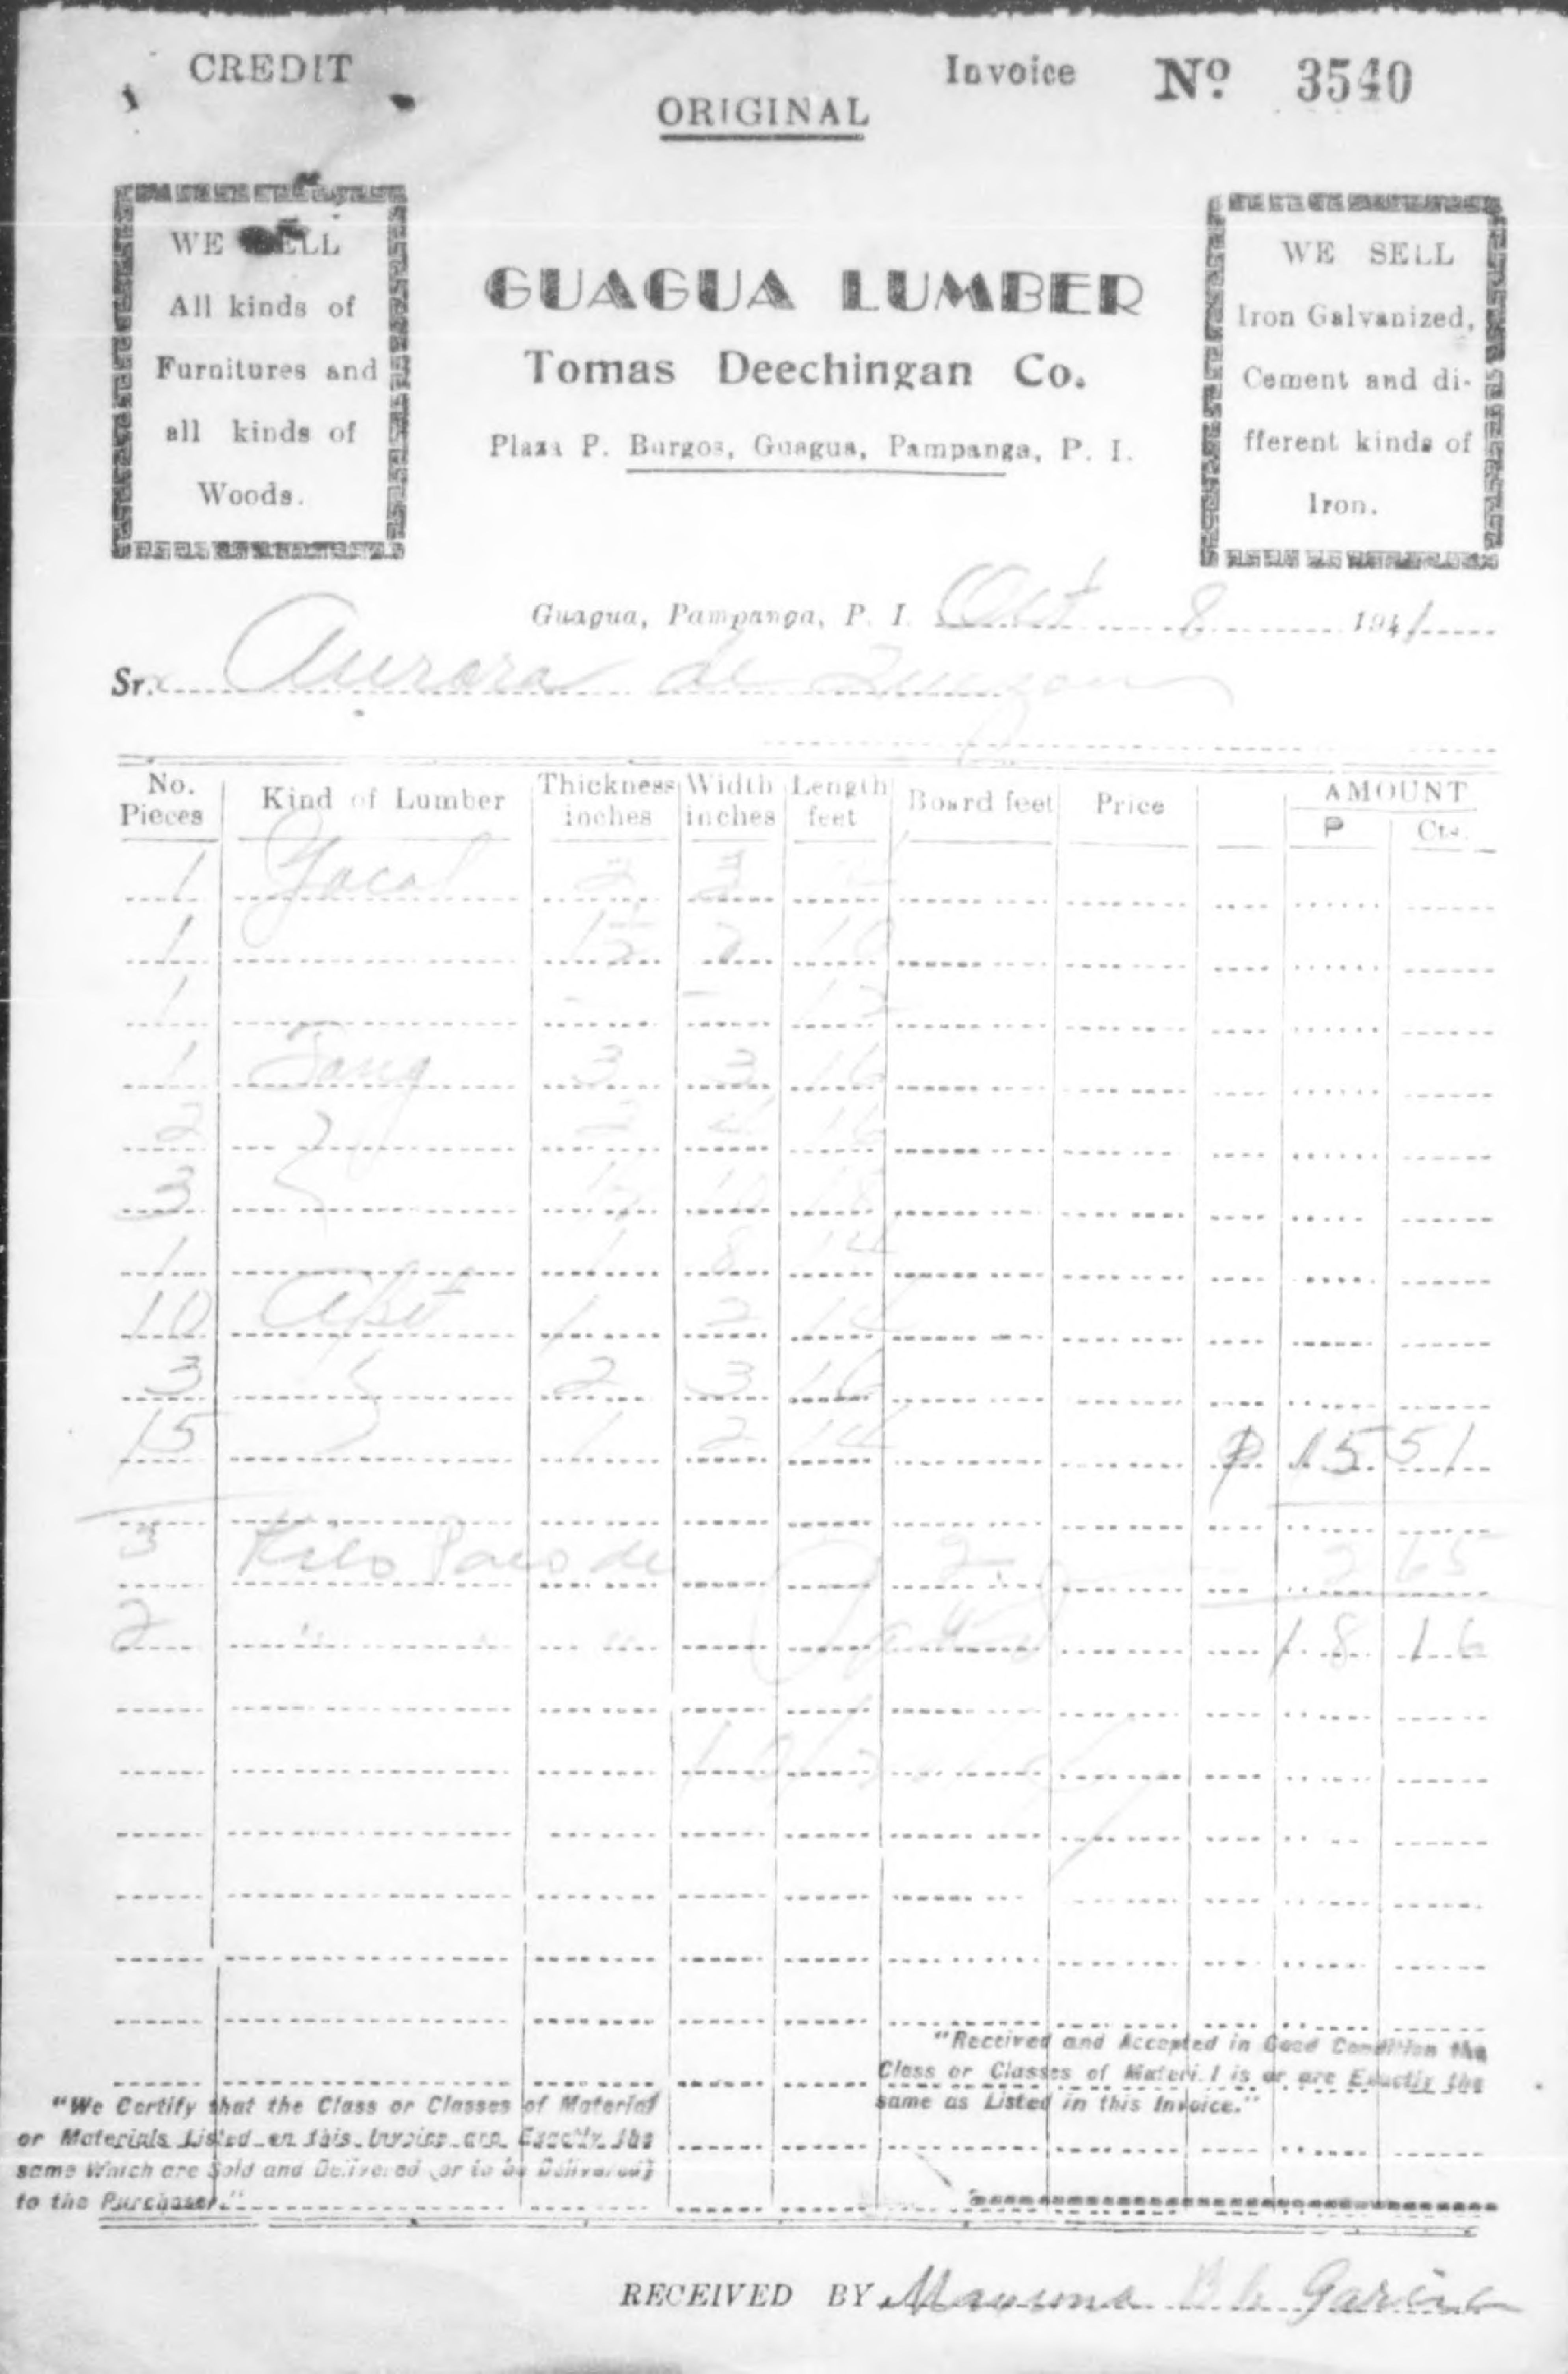 CREDIT
Invoice Nº 3540
ORIGINAL
WE SELL
All kinds of
Furnitures and
all kinds of
Woods.
GUAGUA LUMBER
Tomas Deechingan Co.
Plaza P. Burgos, Guagua, Pampanga, P. I.
WE SELL
Iron Galvanized,
Cement and di-
fferent kinds of
Iron.
Guagua, Pampanga, P. I. Oct 8 1941
Sr. Aurora de Quezon
No. Pieces Kind of Lumber Thickness inches Width inches Length feet Board feet Price AMOUNT
P Cts.
1 Yacal 2 3
1 1½ 2 10
1 12
1 Tang 3 3 16
2 2 4 16
3 18
1 1 8 14
10 Apit 1 2 14
3 2 3 16
15 1 2 14 P 15 51
3 Kilo de 2 65
2 " " " 18 16
"Received and Accepted in Good Condition the
Class or Classes of Material is or are Exactly the
same as Listed in this Invoice."
"We Certify that the Class or Classes of Material
or Materials Listed on this Invoice are Exactly the
same Which are Sold and Delivered (or to be Delivered)
to the Purchaser."
RECEIVED BY Garcia